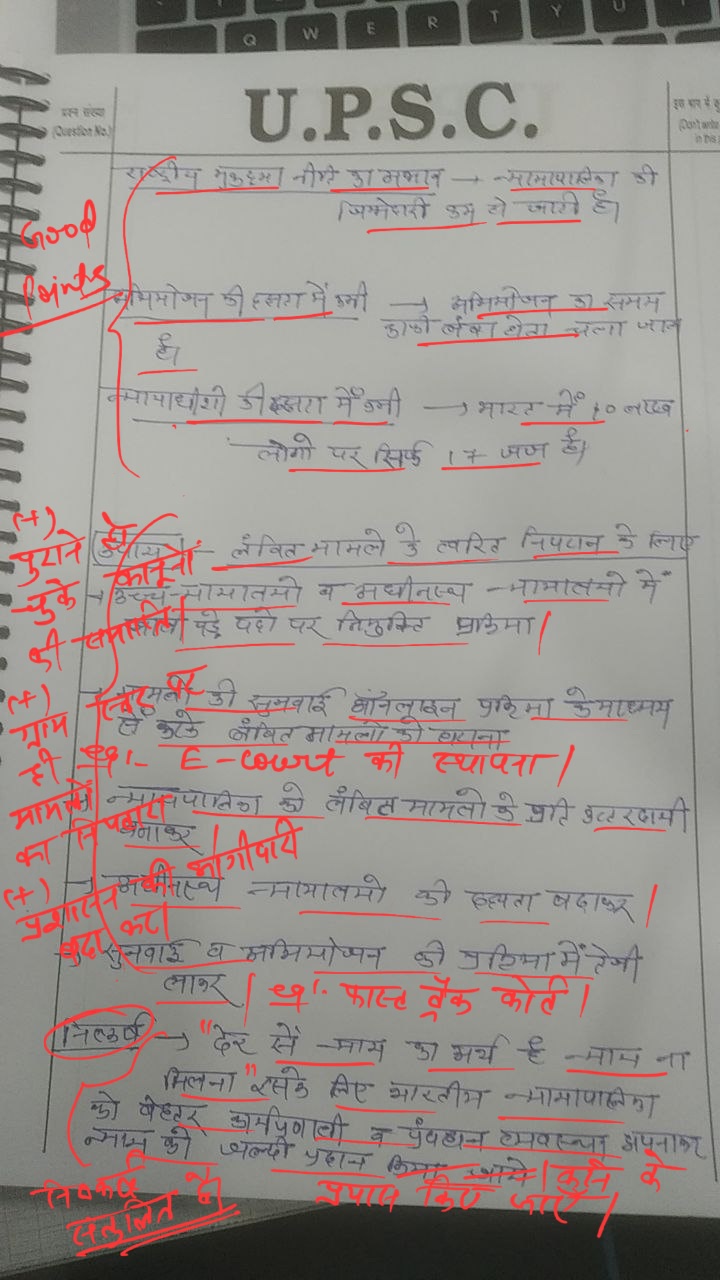 Q W E R T Y U
प्रश्न संख्या
(Question No.)
U.P.S.C.
इस भाग में कु
(Don't write
in this
राष्ट्रीय मुकदमा नीति का अभाव → न्यायपालिका की
जिम्मेदारी कम हो जाती है।
Good
Points
अभियोजन की दक्षता में कमी → अभियोजन का समय
काफी लंबा होता चला जाता
है।
न्यायाधीशों की दक्षता में कमी → भारत में 10 लाख
लोगो पर सिर्फ 17 जज है।
उपाय - लंबित मामले के त्वरित निपटान के लिए
→ उच्च न्यायालयो व अधीनस्थ न्यायालयो में
पड़े पदो पर नियुक्ति प्रक्रिया।
(+)
पुराने हो
चुके कानूनों
की समाप्ति।
की सुनवाई ऑनलाइन प्रक्रिया के माध्यम
से करके लंबित मामलो को घटाना
eg:- E-court की स्थापना।
(+)
ग्राम स्तर पर
ही
मामलों
का निपटारा
न्यायपालिका को लंबित मामलो के प्रति उत्तरदायी
बनाकर
→ अधीनस्थ न्यायालयो की दक्षता बढाकर।
(+)
प्रशासन की भागीदारी
बढ़ा कर।
सुनवाई व अभियोजन की प्रक्रिया में तेजी
लाकर। eg:- फास्ट ट्रैक कोर्ट।
निष्कर्ष → "देर से न्याय का अर्थ है न्याय ना
मिलना" इसके लिए भारतीय न्यायपालिका
को बेहतर कार्यप्रणाली व प्रंबधन व्यवस्था अपनाकर
न्याय को जल्दी प्रदान किया जाये। करने के
प्रयास किए जाएँ।
निष्कर्ष
संतुलित है।